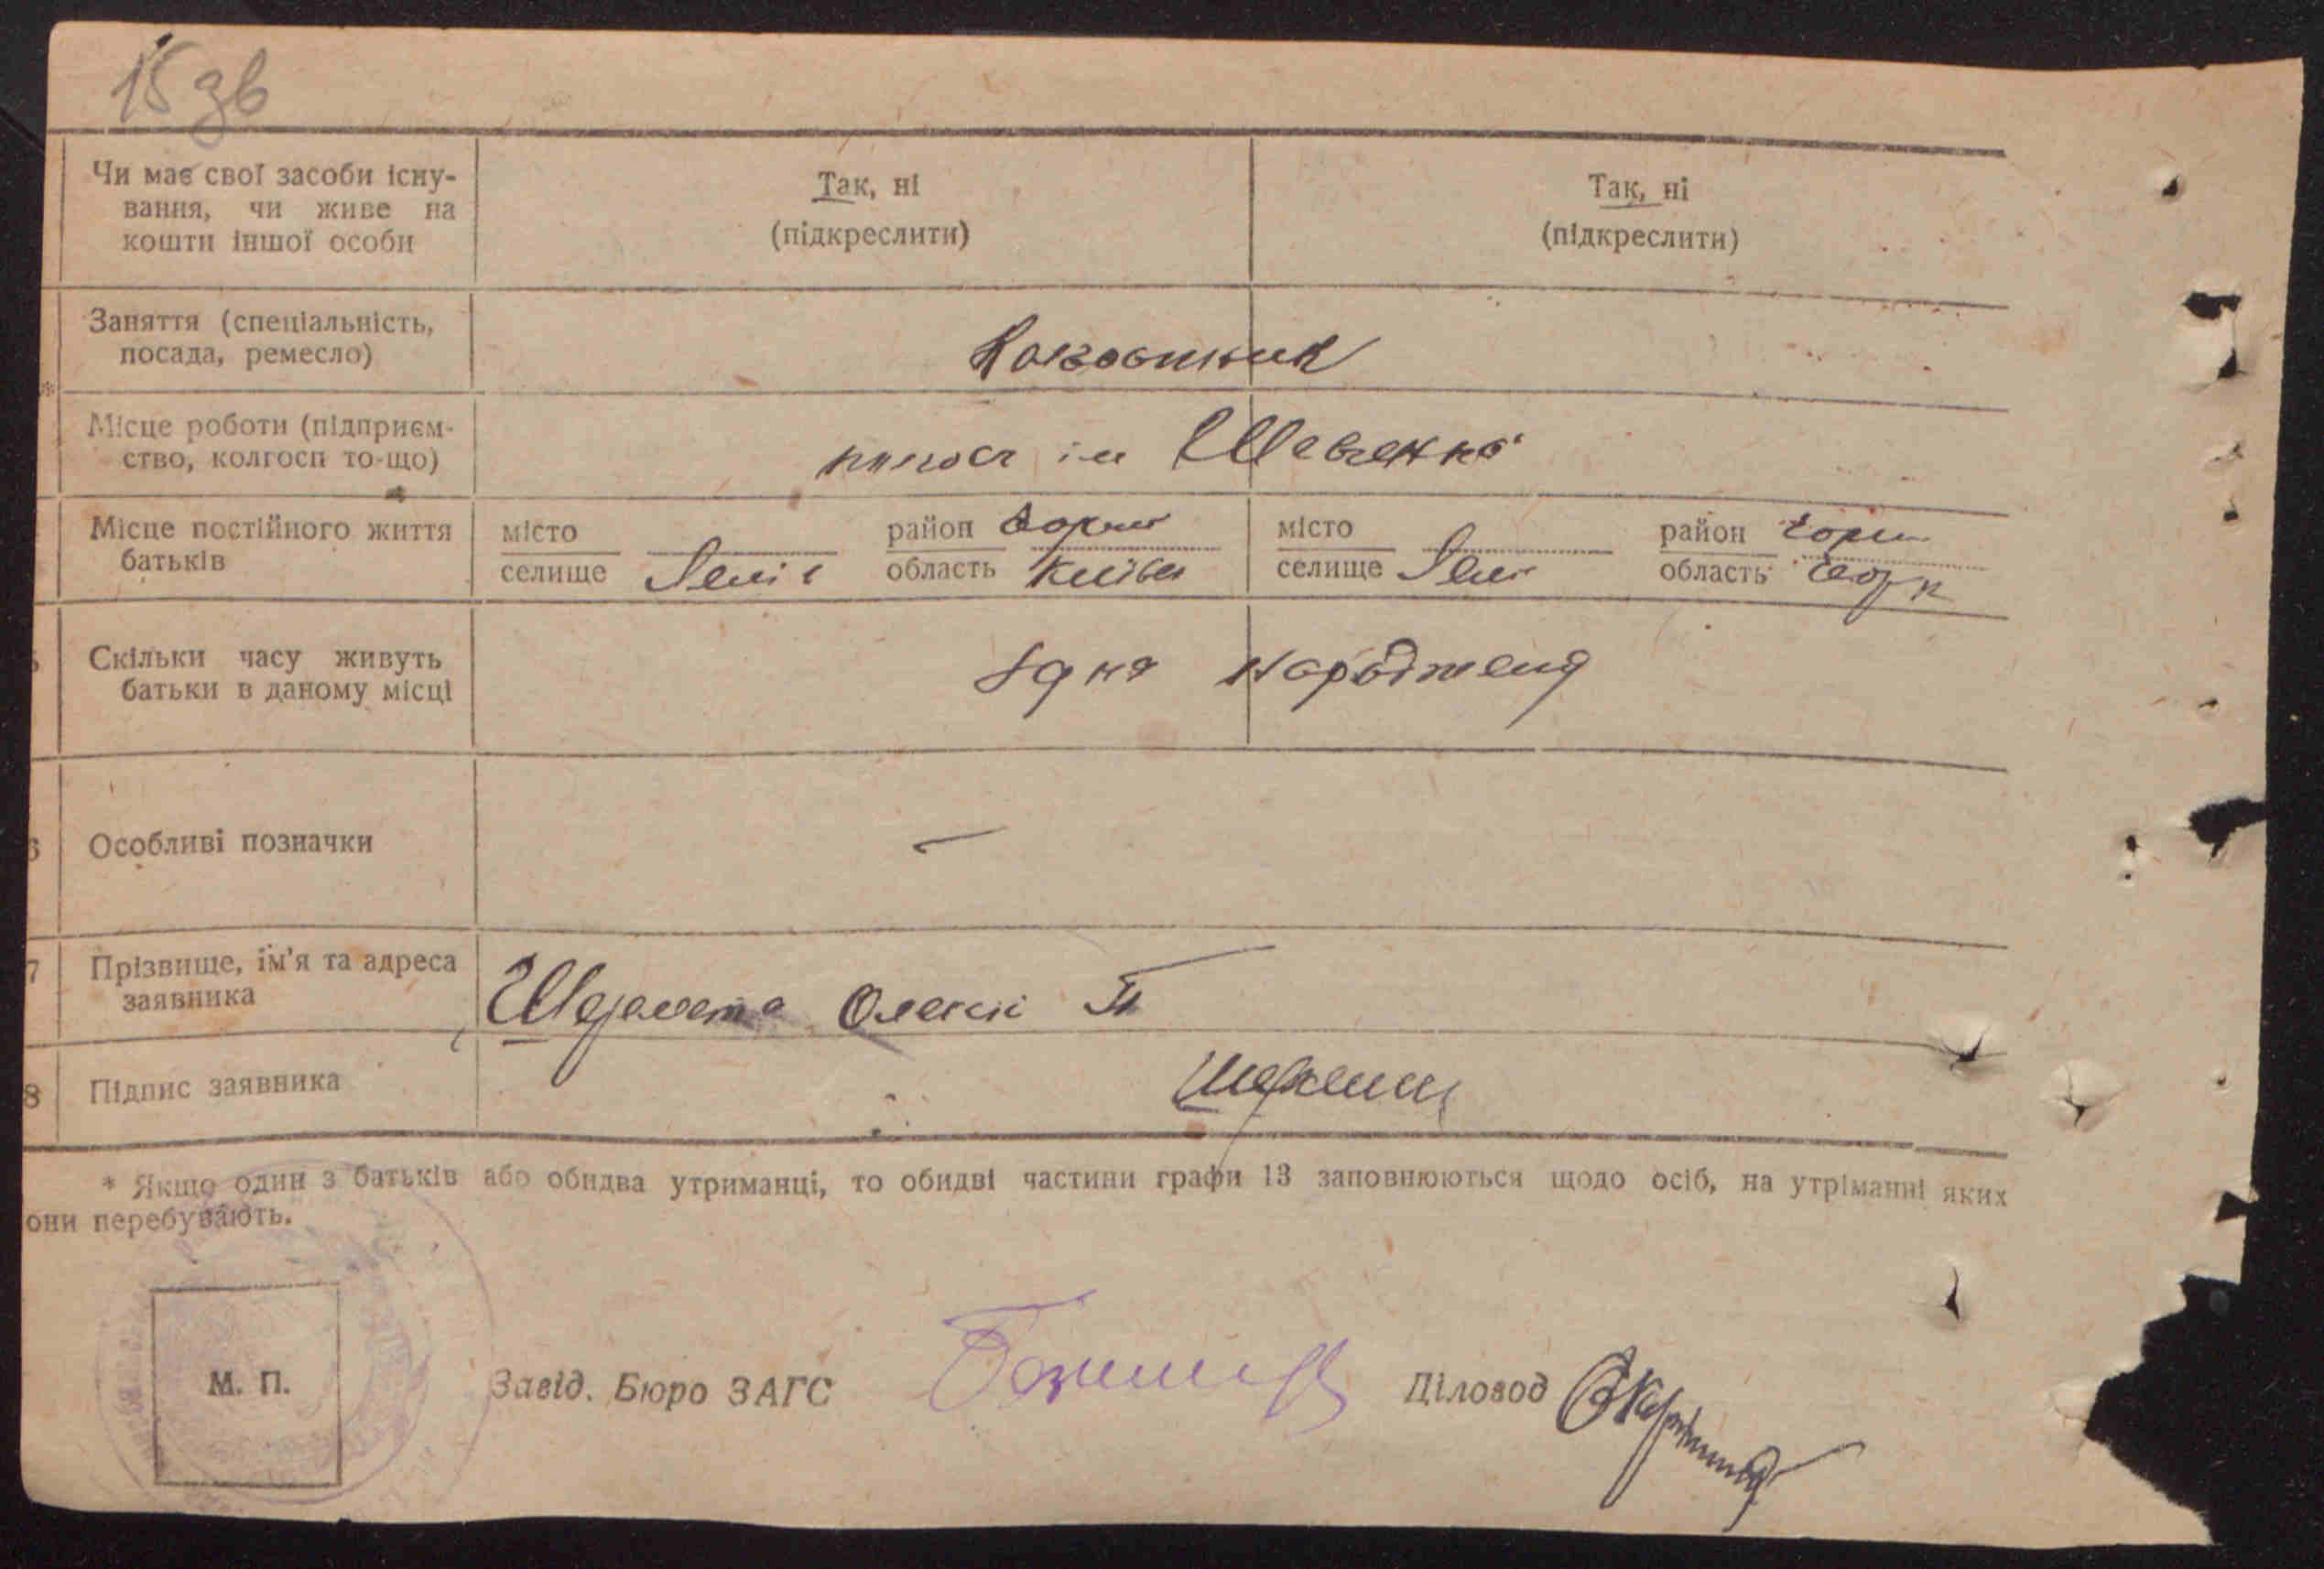 15 зв
Чи має свої засоби існу-
вання, чи живе на
кошти іншої особи
Так, ні
(підкреслити)
Так, ні
(підкреслити)
Заняття (спеціальність,
посада, ремесло)
*
Місце роботи (підприєм-
ство, колгосп то-що)
ім Шевченка
Місце постійного життя
батьків
місто
селище
район
область Київськ
місто
селище
район
область
Скільки часу живуть
батьки в даному місці
з дня народження
6 Особливі позначки
—
7 Прізвище, ім'я та адреса
заявника
Шеремета Олексій П
8 Підпис заявника
* Якщо один з батьків або обидва утриманці, то обидві частини графи 13 заповнюються щодо осіб, на утріманні яких
они перебувають.
М. П.
Завід. Бюро ЗАГС
Діловод